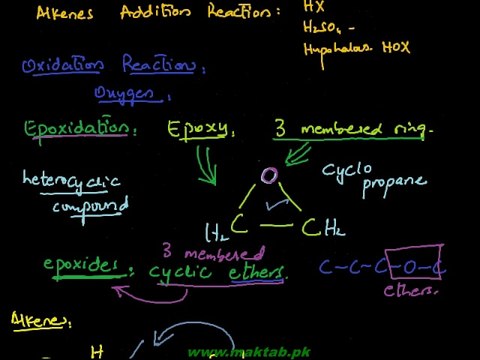 Alkenes Addition Reaction: HX
H2SO4 -
Hypohalous. HOX
Oxidation Reaction:
Oxygen:
Epoxidation: Epoxy: 3 membered ring.
heterocyclic
compound
O
cyclo
propane
H2C CH2
3 membered
epoxides: cyclic ethers.
C-C-C-O-C
ethers.
Alkenes:
H
www.maktab.pk